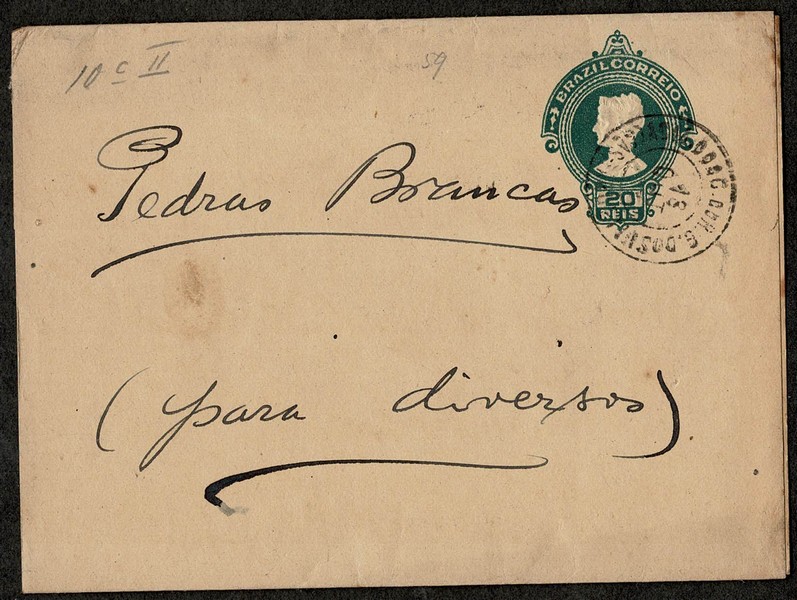 10 c II
59
BRAZIL CORREIO
20
REIS
Pedras Brancas
(para diversos)